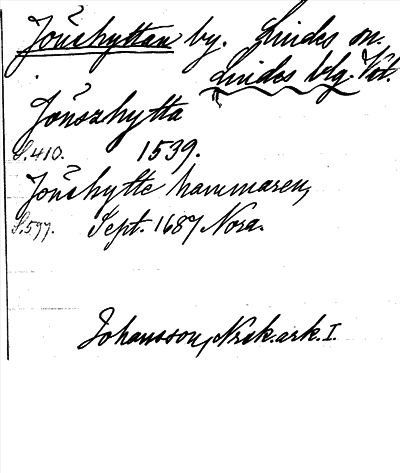 Jönshyttan by. Lindes sn.
Lindes blg. Vstm.
Jönszhytta
S. 410. 1539.
Jönshytte hammaren,
S. 597. Sept. 1687 Nora.
Johansson, Norak. ark. I.